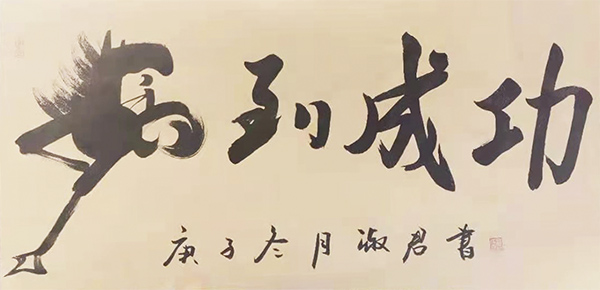 马到成功
庚子冬月淑君書